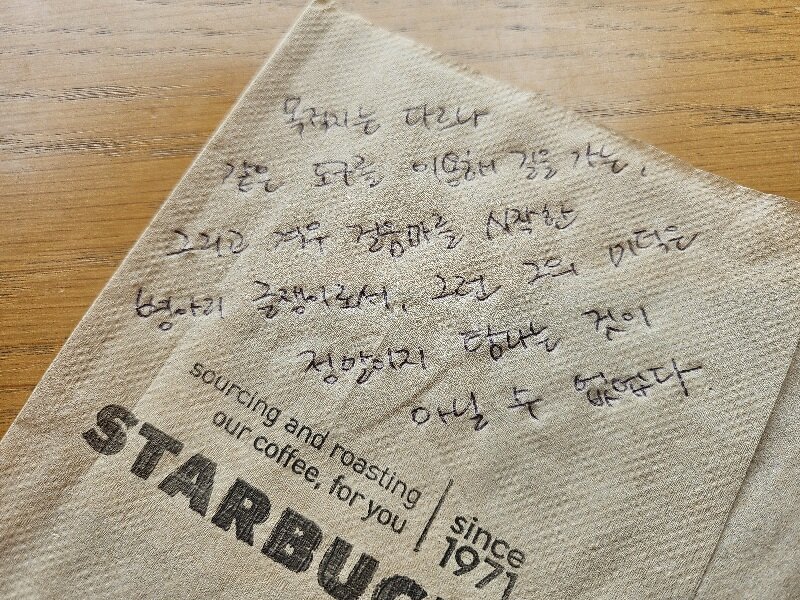 목적지는 다르나
같은 도구를 이용해 길을 가는,
그리고 겨우 걸음마를 시작한
병아리 글쟁이로서, 그런 그의 미덕은
정말이지 탐나는 것이
아닐 수 없었다.
sourcing and roasting
our coffee, for you
since
1971
STARBUC